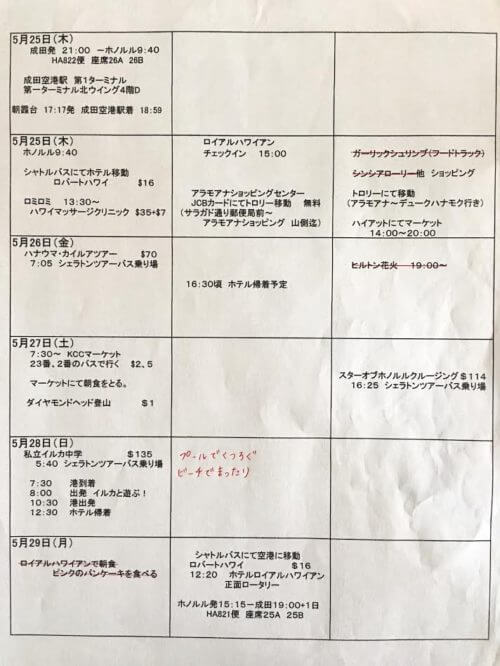 5月25日(木)
成田発 21:00 －ホノルル9:40
HA822便 座席26A 26B
成田空港駅 第1ターミナル
第一ターミナル北ウイング4階D
朝霞台 17:17発 成田空港駅着 18:59
5月25日(木)
ホノルル9:40
シャトルバスにてホテル移動
ロバートハワイ $16
ロミロミ 13:30～
ハワイマッサージクリニック $35+$7
ロイアルハワイアン
チェックイン 15:00
アラモアナショッピングセンター
JCBカードにてトロリー移動 無料
(サラガド通り郵便局前～
アラモアナショッピング 山側迄)
ガーリックシュリンプ(フードトラック)
シンシアローリー他 ショッピング
トロリーにて移動
(アラモアナ～デュークハナモク行き)
ハイアットにてマーケット
14:00～20:00
5月26日(金)
ハナウマ・カイルアツアー $70
7:05 シェラトンツアーバス乗り場
16:30頃 ホテル帰着予定
ヒルトン花火 19:00～
5月27日(土)
7:30～ KCCマーケット
23番、2番のバスで行く $2、5
マーケットにて朝食をとる。
ダイヤモンドヘッド登山 $1
スターオブホノルルクルージング$114
16:25 シェラトンツアーバス乗り場
5月28日(日)
私立イルカ中学 $135
5:40 シェラトンツアーバス乗り場
7:30 港到着
8:00 出発 イルカと遊ぶ!
10:30 港出発
12:30 ホテル帰着
プールでくつろぐ
ビーチでまったり
5月29日(月)
ロイアルハワイアンで朝食
ピンクのパンケーキを食べる
シャトルバスにて空港に移動
ロバートハワイ $16
12:20 ホテルロイアルハワイアン
正面ロータリー
ホノルル発15:15－成田19:00+1日
HA821便 座席25A 25B